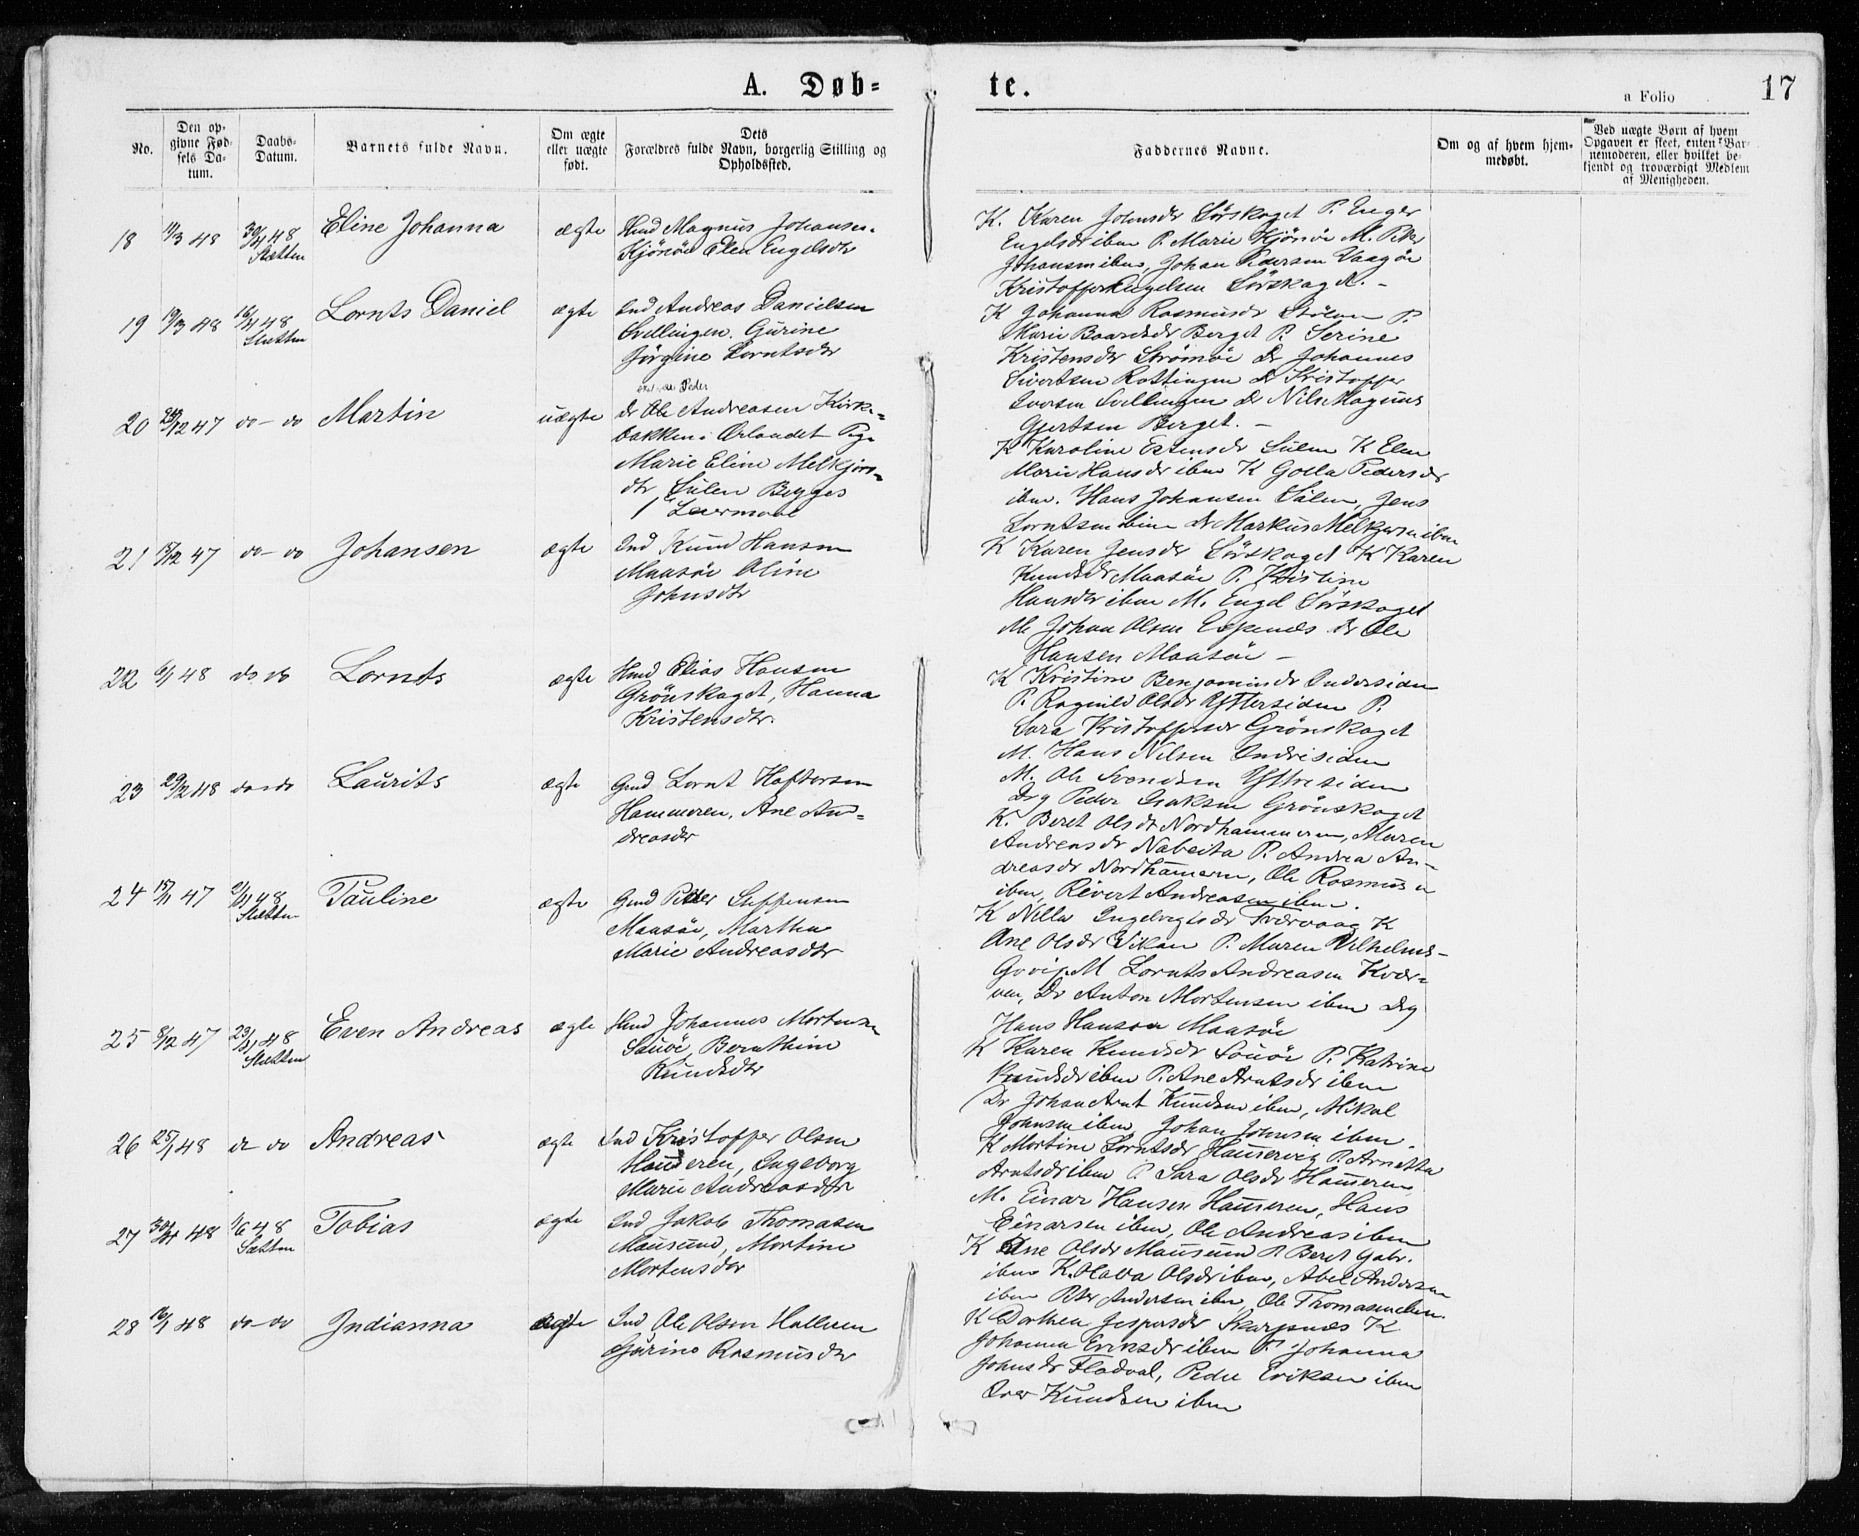 A. Døb= te.
a Folio 17
No.
Den op-
givne Fød-
sels Da-
tum.
Daabs-
Datum.
Barnets fulde Navn.
Om ægte
eller uægte
født.
Dets
Forældres fulde Navn, borgerlig Stilling og
Opholdssted.
Faddernes Navne.
Om og af hvem hjem-
medøbt.
Ved uægte Børn af hvem
Opgaven er skeet, enten Bar-
nemoderen, eller hvilket be-
kjendt og troværdigt Medlem
af Menigheden.
18 11/3 48 30/4 48 Eline Johanna ægte Hmd Magnus Johansen
Slætten
Kjönöe Elen Engelsdtr
K. Karen Johnsdr Sörskaget P. Enger
Engelsdr ibm P. Marie Kjönöe M. Peter
Johansen ibm, Johan Pedersen Vaagöe
Kristoffer Engelsen Sörskaget. -
19 19/3 48 16/4 48 Lornts Daniel ægte Ind Andreas Danielsen
Slætten
Svellingen. Gurine
Jörgine Lorntsdtr
K Johanna Rasmusdr Stölan P.
Marie Baardsdr Berget P. Serine
Kristensdr Strömöe Dr Johannes
Sivertsen Rottingen Dr Kristoffer
Iversen Svellingen Dr Nils Magnus
Gjertsen Berget. -
20 28/12 47 do - do Martin uægte
Peder
dr Ole Andreasen Kirke=
bakken i Örlandet Pige
Marie Eline Melkjörs=
dtr Sulen Begges
1 Leiermaal
K Karoline Estensdr Sulen K Elen
Marie Hansdr ibm K Golla Pedersdr
ibm. Hans Johansen Sulen, Jens
Lorntsen ibm dr Markus Melkjörsen ibm
21 15/12 47 do - do Johansen ægte Ind Knud Hansen
Maasöe Oline
Johnsdtr
K Karen Jensdr Sörskaget K Karen
Knudsdr Maasöe P. Kristine
Hansdr ibm M. Engel Sörskaget
M. Johan Olsen Espenes dr Ole
Hansen Maasöe -
22 6/1 48 do do Lornts ægte Hmd Elias Hansen
Grönskaget, Hanna
Kristensdtr.
K Kristine Benjaminsdr Indersiden
P. Ragnild Olsdr Yttersiden P.
Sara Kristoffersdr Grönskaget
M. Hans Nilsen Indresiden
M. Ole Svendsen Yttresiden
Drg Peder Isaksen Grönskaget
23 29/2 48 do - do Laurits ægte Gmd Lornt Haftorsen
Hammeren, Ane An=
dreasdtr
K. Beret Olsdr Nordhammeren, Maren
Andreasdr Nabeita P. Andrea An-
dreasdr Nordhameren, Ole Rasmusen
ibm, Sivert Andreasen ibm.
24 15/11 47 2/1 48 Pauline ægte Gmd Peter Steffensen
Slætten
Maasöe, Martha
Marie Andreasdtr
K Nilla Ingebrigtsdr Tværvaag K
Ane Olsdr Vikan P. Maren Vilhelms-
M Lornts Andreasen Kvær=
ven, Dr Anton Mortensen ibm Drg
Hans Hansen Maasöe
25 8/12 47 23/1 48 Even Andreas ægte Hmd Johannes Mortensen
Slætten
Sauöe, Bernthine
Knudsdtr
K Karen Knudsdr Sauöe P. Katrine
Knudsdr ibm P. Ane Arntsdr ibm
Dr Johan Arnt Knudsen ibm, Mikal
Johnsen ibm, Johan Johnsen ibm.
26 25/1 48 do - do Andreas ægte Ind Kristoffer Olsen
Ingeborg
Marie Andreasdtr
K Mortine Lorntsdr Hamervig P. Arnetta
Arntsdr ibm P. Sara Olsdr Hameren
M. Einar Hansen Hameren, Hans
Einarsen ibm, Ole Andreas ibm
27 30/4 48 1/6 48 Tobias ægte Ind Jakob Thomasen
Sletten
Mausund, Mortine
Mortensdtr
K Ane Olsdr Mausund P. Beret Gabr.
ibm K. Olava Olsdr ibm, Abel Andersen
ibm Peter Andersen ibm, Ole Thomasen ibm.
28 16/1 48 do - do Indianna ægte Ind Ole Olsen Hallaren
Gurine Rasmusdtr
K Dorthea Jespersdr Skarpnæs K
Johanna Eriksdr ibm P. Johanna
Johnsdr Fladval, Peder Eriksen ibm
Iver Knudsen ibm